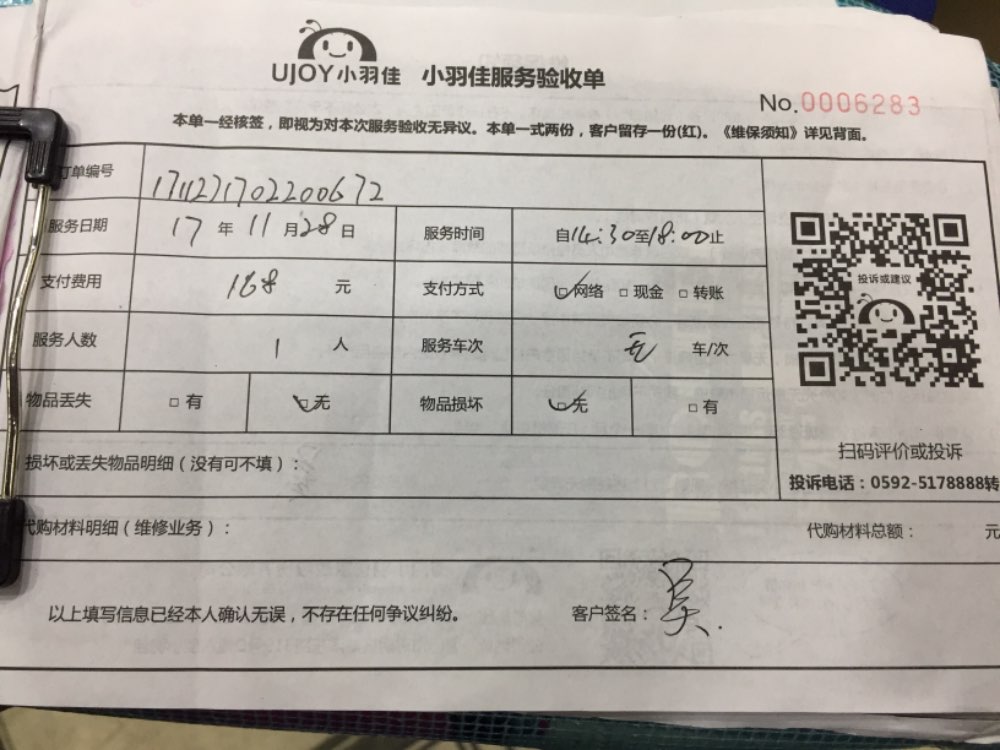 UJOY小羽佳 小羽佳服务验收单
No.0006283
本单一经核签，即视为对本次服务验收无异议。本单一式两份，客户留存一份(红)。《维保须知》详见背面。
订单编号 1711271702200672
服务日期 17 年 11 月 28 日 服务时间 自14:30至18:00止
投诉或建议
支付费用 168 元 支付方式 ☑网络 □现金 □转账
服务人数 1 人 服务车次 无 车/次
物品丢失 □有 ☑无 物品损坏 ☑无 □有
扫码评价或投诉
损坏或丢失物品明细（没有可不填）：
投诉电话：0592-5178888转
代购材料明细（维修业务）： 代购材料总额： 元
以上填写信息已经本人确认无误，不存在任何争议纠纷。 客户签名：吴